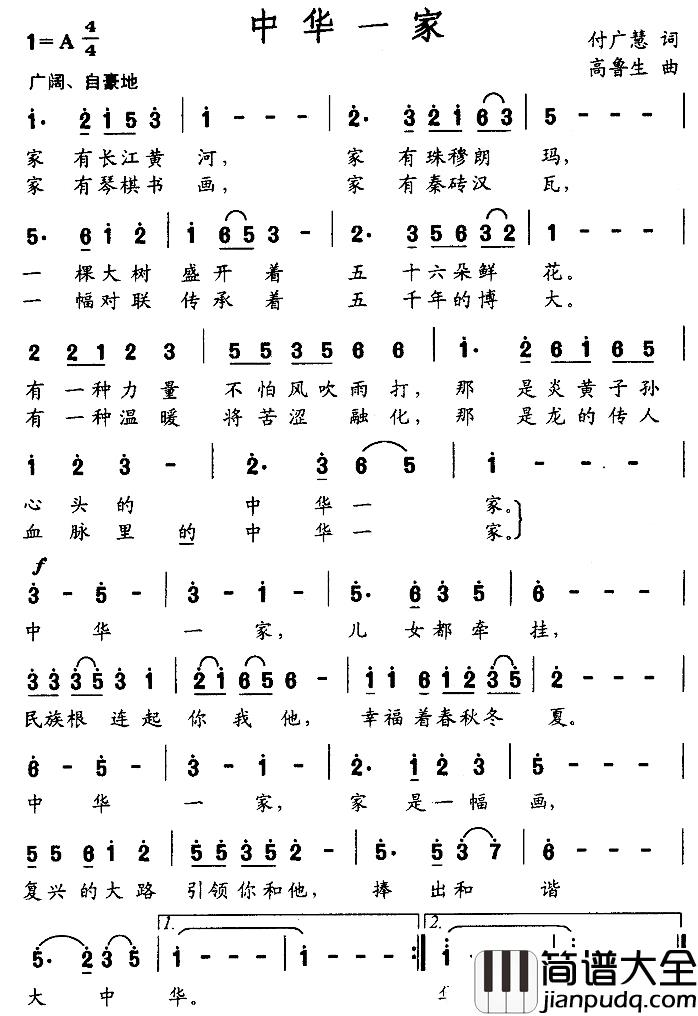 中华一家
1=A 4/4
付广慧 词
高鲁生 曲
广阔、自豪地
1· 2 1 5 3 | 1 - - - | 2· 3 2 1 6 3 | 5 - - -
家 有长江黄 河， 家 有珠穆朗 玛，
家 有琴棋书 画， 家 有秦砖汉 瓦，
5· 6 1 2 | 1 6 5 3 - | 2· 3 5 6 3 2 | 1 - - -
一 棵大树 盛开 着 五 十六朵鲜 花。
一 幅对联 传承 着 五 千年的博 大。
2 2 1 2 3 | 5 5 3 5 6 6 | 1· 2 6 1 6 5
有 一种力 量 不怕风吹雨 打，那 是炎黄子孙
有 一种温 暖 将苦涩 融 化，那 是龙的传人
1 2 3 - | 2· 3 6 5 | 1 - - -
心 头 的 中 华 一 家。
血 脉 里 的 中 华 一 家。
f
3 - 5 - | 3 - 1 - | 5· 6 3 5 | 6 - - -
中 华 一 家， 儿 女都牵 挂，
3 3 3 5 3 1 | 2 1 6 5 6 - | 1 1 6 1 2 3 5 | 2 - - -
民族根 连起 你 我 他， 幸福着春秋冬 夏。
6 - 5 - | 3 - 1 - | 2· 1 2 3 | 5 - - -
中 华 一 家， 家 是一幅 画，
5 5 5 6 1 2 | 5 5 3 5 2 - | 5· 5 3 7 | 6 - - -
复兴 的大路 引领你和他， 捧 出和 谐
1.
2.
5· 2 3 5 | 1 - - - | 1 - - - :| 1 -
大 中 华。
简谱大全
jianpudq.com